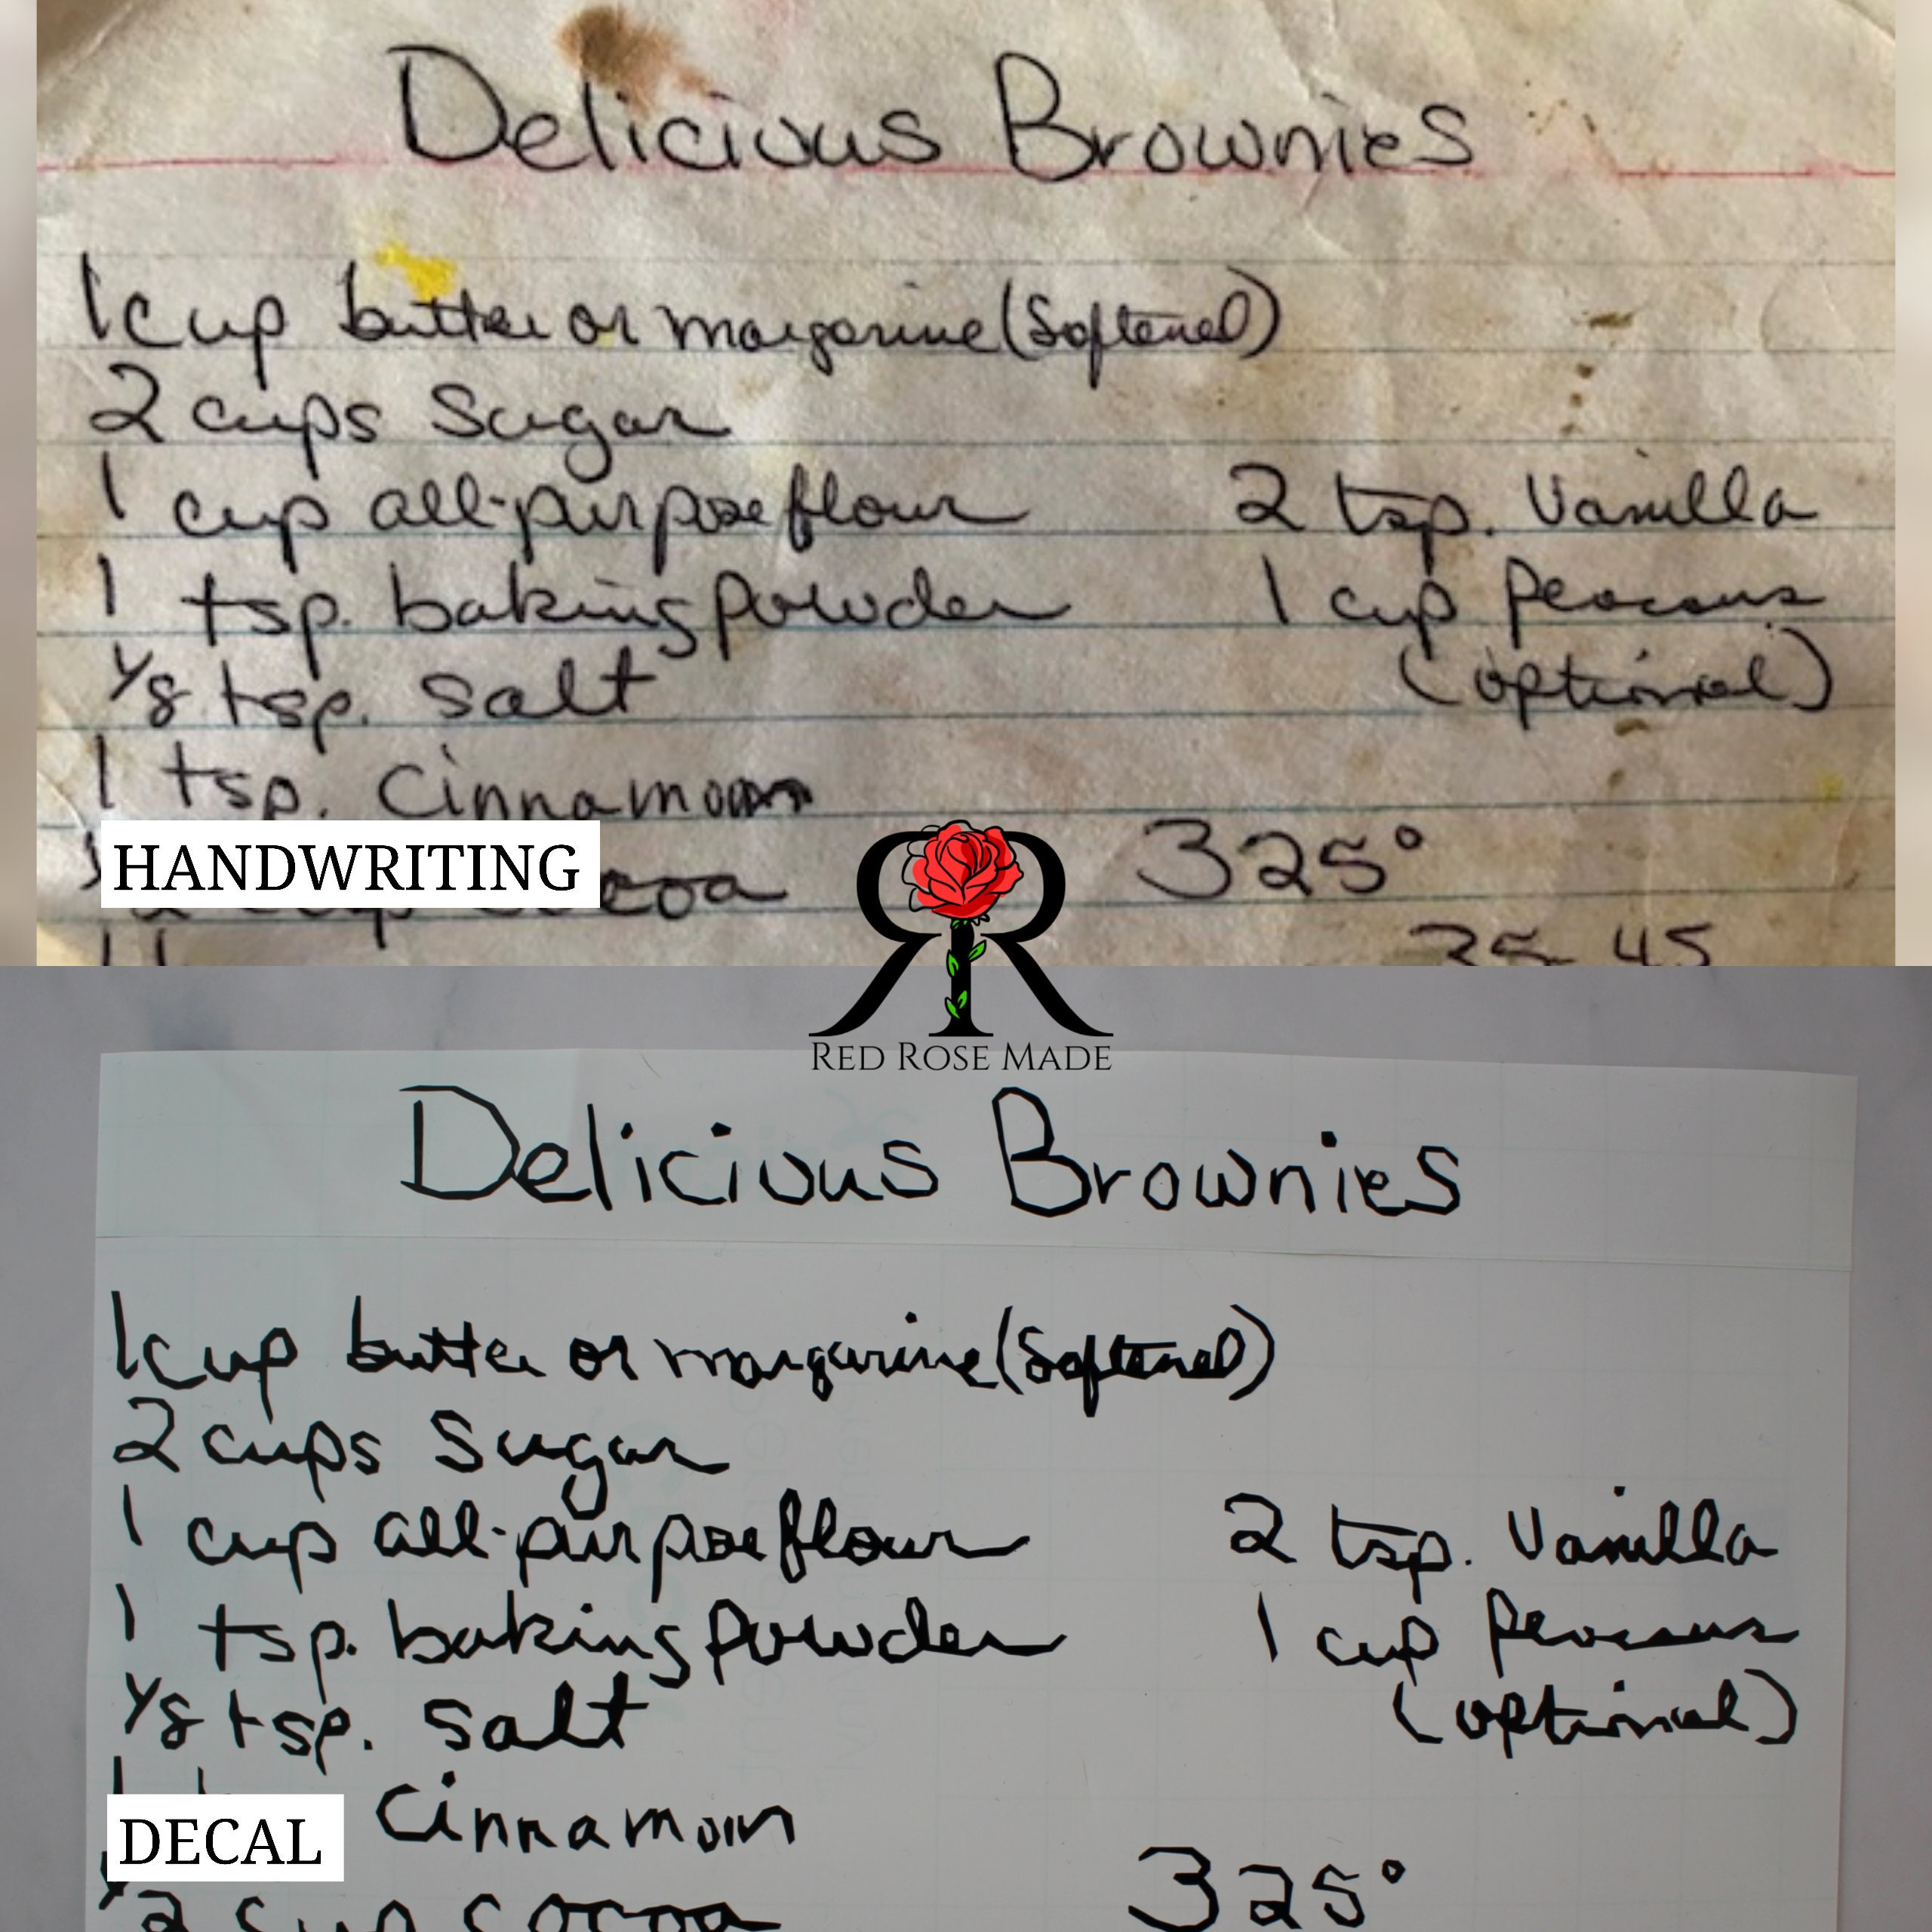 Delicious Brownies
1 cup butter or margarine (Softened)
2 cups Sugar
1 cup all-purpose flour
2 tsp. Vanilla
1 tsp. baking Powder
1 cup Pecans
1/8 tsp. Salt
(optional)
1 tsp. Cinnamon
HANDWRITING
cocoa
325°
35-45
RED ROSE MADE
Delicious Brownies
1 cup butter or margarine (Softened)
2 cups Sugar
1 cup all-purpose flour
2 tsp. Vanilla
1 tsp. baking Powder
1 cup Pecans
1/8 tsp. Salt
(optional)
Cinnamon
DECAL
1/2 cup cocoa
325°